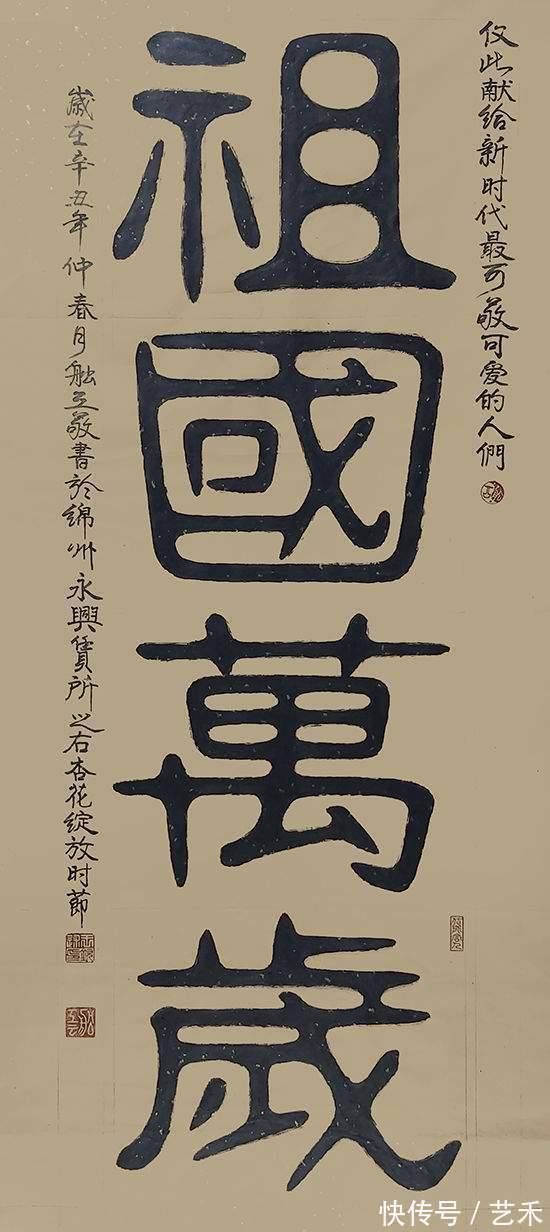 仅此献给新时代最可敬可爱的人們
祖國萬歲
歲在辛丑年仲春月敬書於綿州永興賃所之右杏花綻放时節
快传号/艺禾